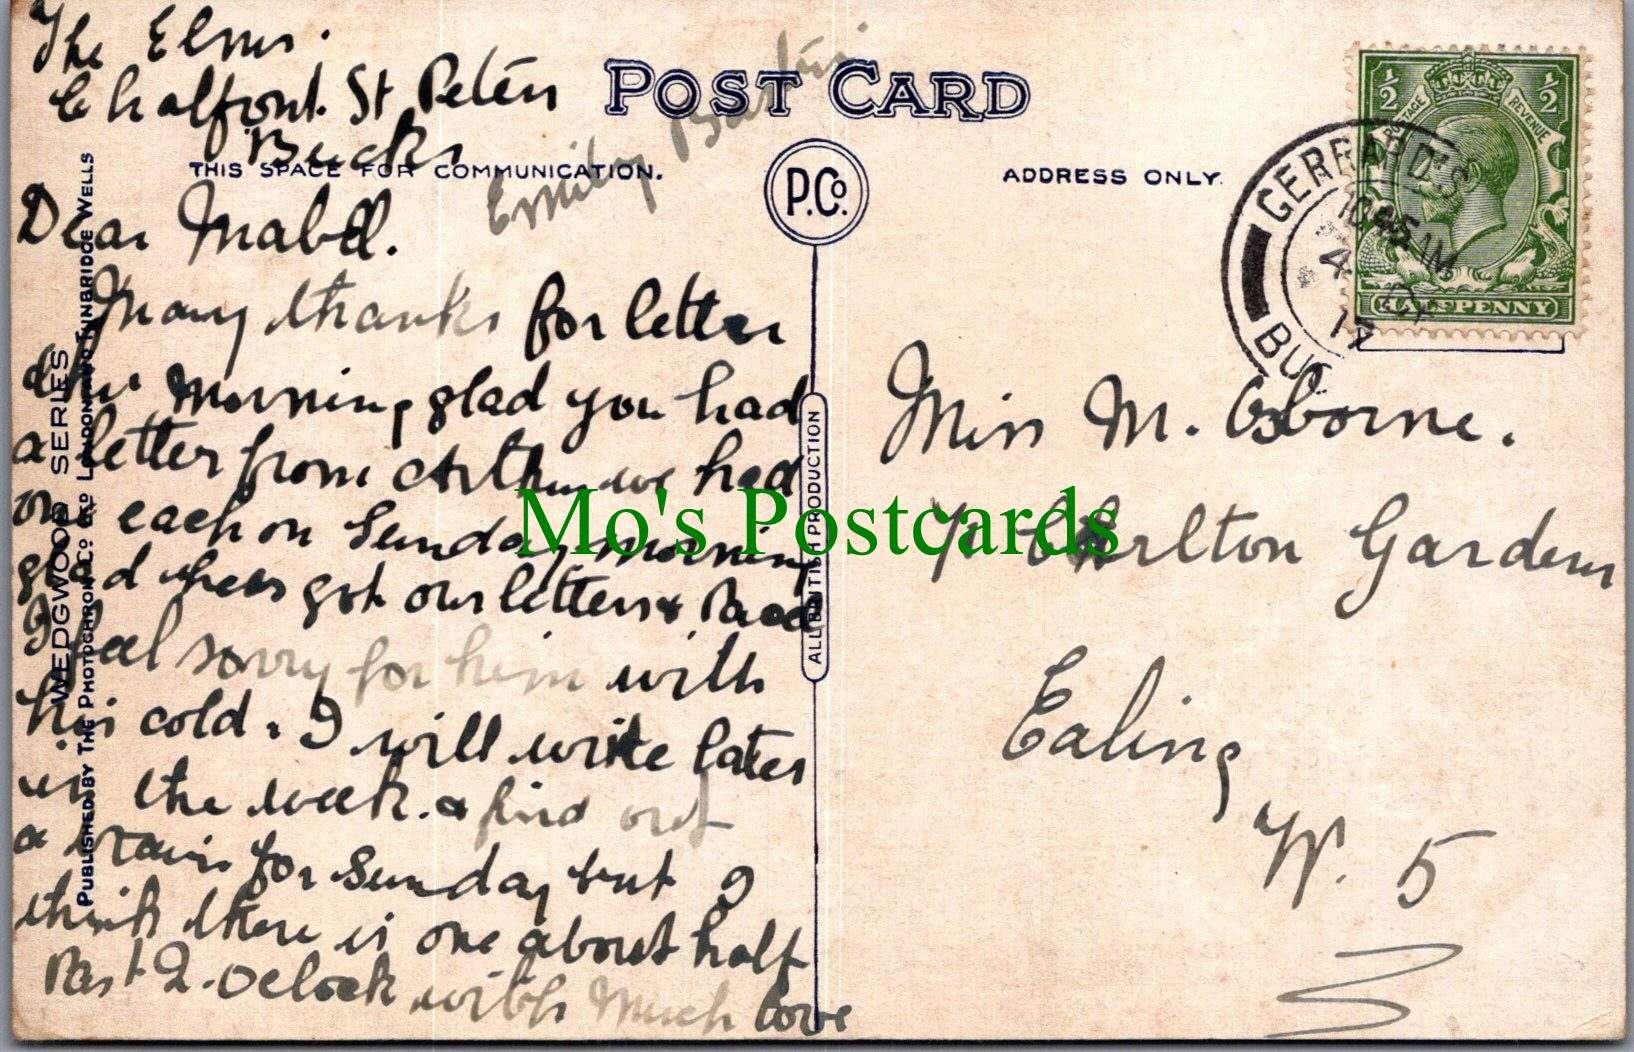 The Elms.
Chalfont. St Peters
Bucks
POST CARD
THIS SPACE FOR COMMUNICATION.
ADDRESS ONLY.
P.Co.
Emily
Dear Mabell.
Many thanks for letter
this morning glad you had
a letter from Arthur we had
one each on Sunday morning
glad got our letters &
I feel sorry for him with
his cold. I will write later
in the week. & find out
a train for Sunday but I
think there is one about half
Past 2. Oclock with Much love
WEDGWOOD SERIES
PUBLISHED BY THE PHOTOCHROM CO. LTD. LONDON AND TUNBRIDGE WELLS
ALL BRITISH PRODUCTION
½ ½
POSTAGE REVENUE
HALFPENNY
GERRARD'S
10 45 AM
17
BUC
Miss M. Osborne.
Gardens
Ealing
W. 5
Mo's Postcards